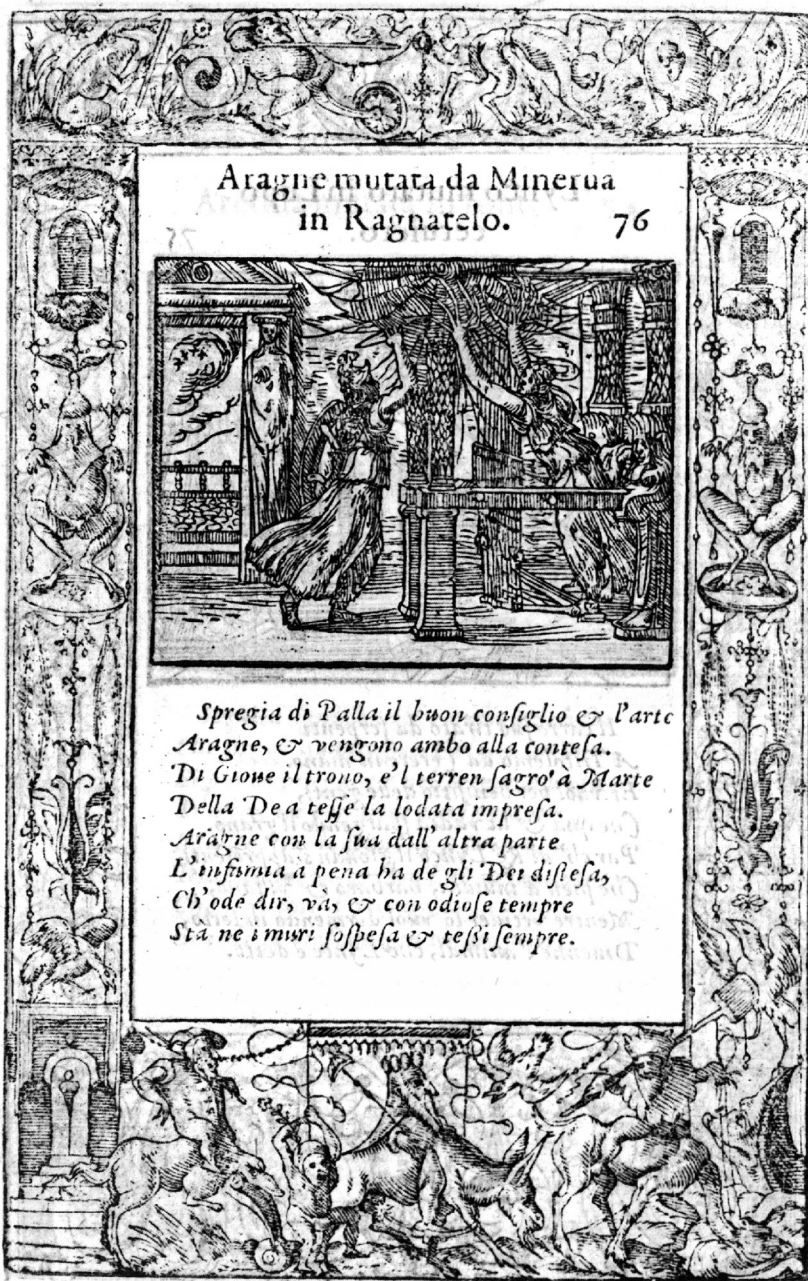 Aragne mutata da Minerua
in Ragnatelo. 76
Spregia di Palla il buon conſiglio & l'arte
Aragne, & vengono ambo alla conteſa.
Di Gioue il trono, e'l terren ſagro à Marte
Della Dea teſſe la lodata impreſa.
Aragne con la ſua dall'altra parte
L'infamia a pena ha de gli Dei diſteſa,
Ch'ode dir, va, & con odioſe tempre
Sta ne i muri ſoſpeſa & teſſi ſempre.